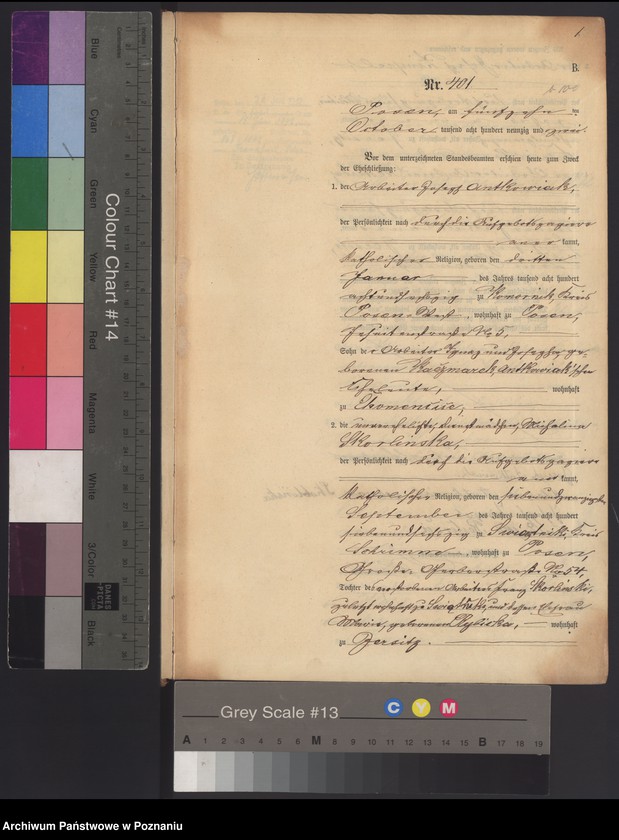 1
B.
Nr. 401
Posen, am fünfzehn ten
October tausend acht hundert neunzig und zwei.
Vor dem unterzeichneten Standesbeamten erschien heute zum Zweck
der Eheschließung:
1. der Arbeiter Joseph Antkowiak,
der Persönlichkeit nach durch die Aufgebots
aner kannt,
katholischer Religion, geboren den dritten
Januar des Jahres tausend acht hundert
acht und sechszig zu Komornik, Kreis
Posen West, wohnhaft zu Posen,
Jesuitenstraße No 5,
Sohn der Arbeiter Ignaz und Josepha, ge-
borenen Kaczmarek, Antkowiak'schen
Eheleute, wohnhaft
zu
2. die unverehelichte, Dienstmädchen, Michalina
Skorlinska,
der Persönlichkeit nach durch die Aufgebots
aner kannt,
katholischer Religion, geboren den siebenundzwanzigsten
September des Jahres tausend acht hundert
siebenundsechszig zu Swiontnik, Kreis
Schrimm, wohnhaft zu Posen,
Große Gerberstraße No 54,
Tochter des verstorbenen Arbeiters Franz Skorlinski,
zuletzt wohnhaft zu und dessen Ehefrau
Marie, geborenen wohnhaft
zu Jersitz.
Colour Chart #14
Blue
Cyan
Green
Yellow
Red
Magenta
White
3/Color
Black
Centimetres
DANES
PICTA
Grey Scale #13
C Y M
A 1 2 3 4 5 6 M 8 9 10 11 12 13 14 15 B 17 18 19
Archiwum Państwowe w Poznaniu